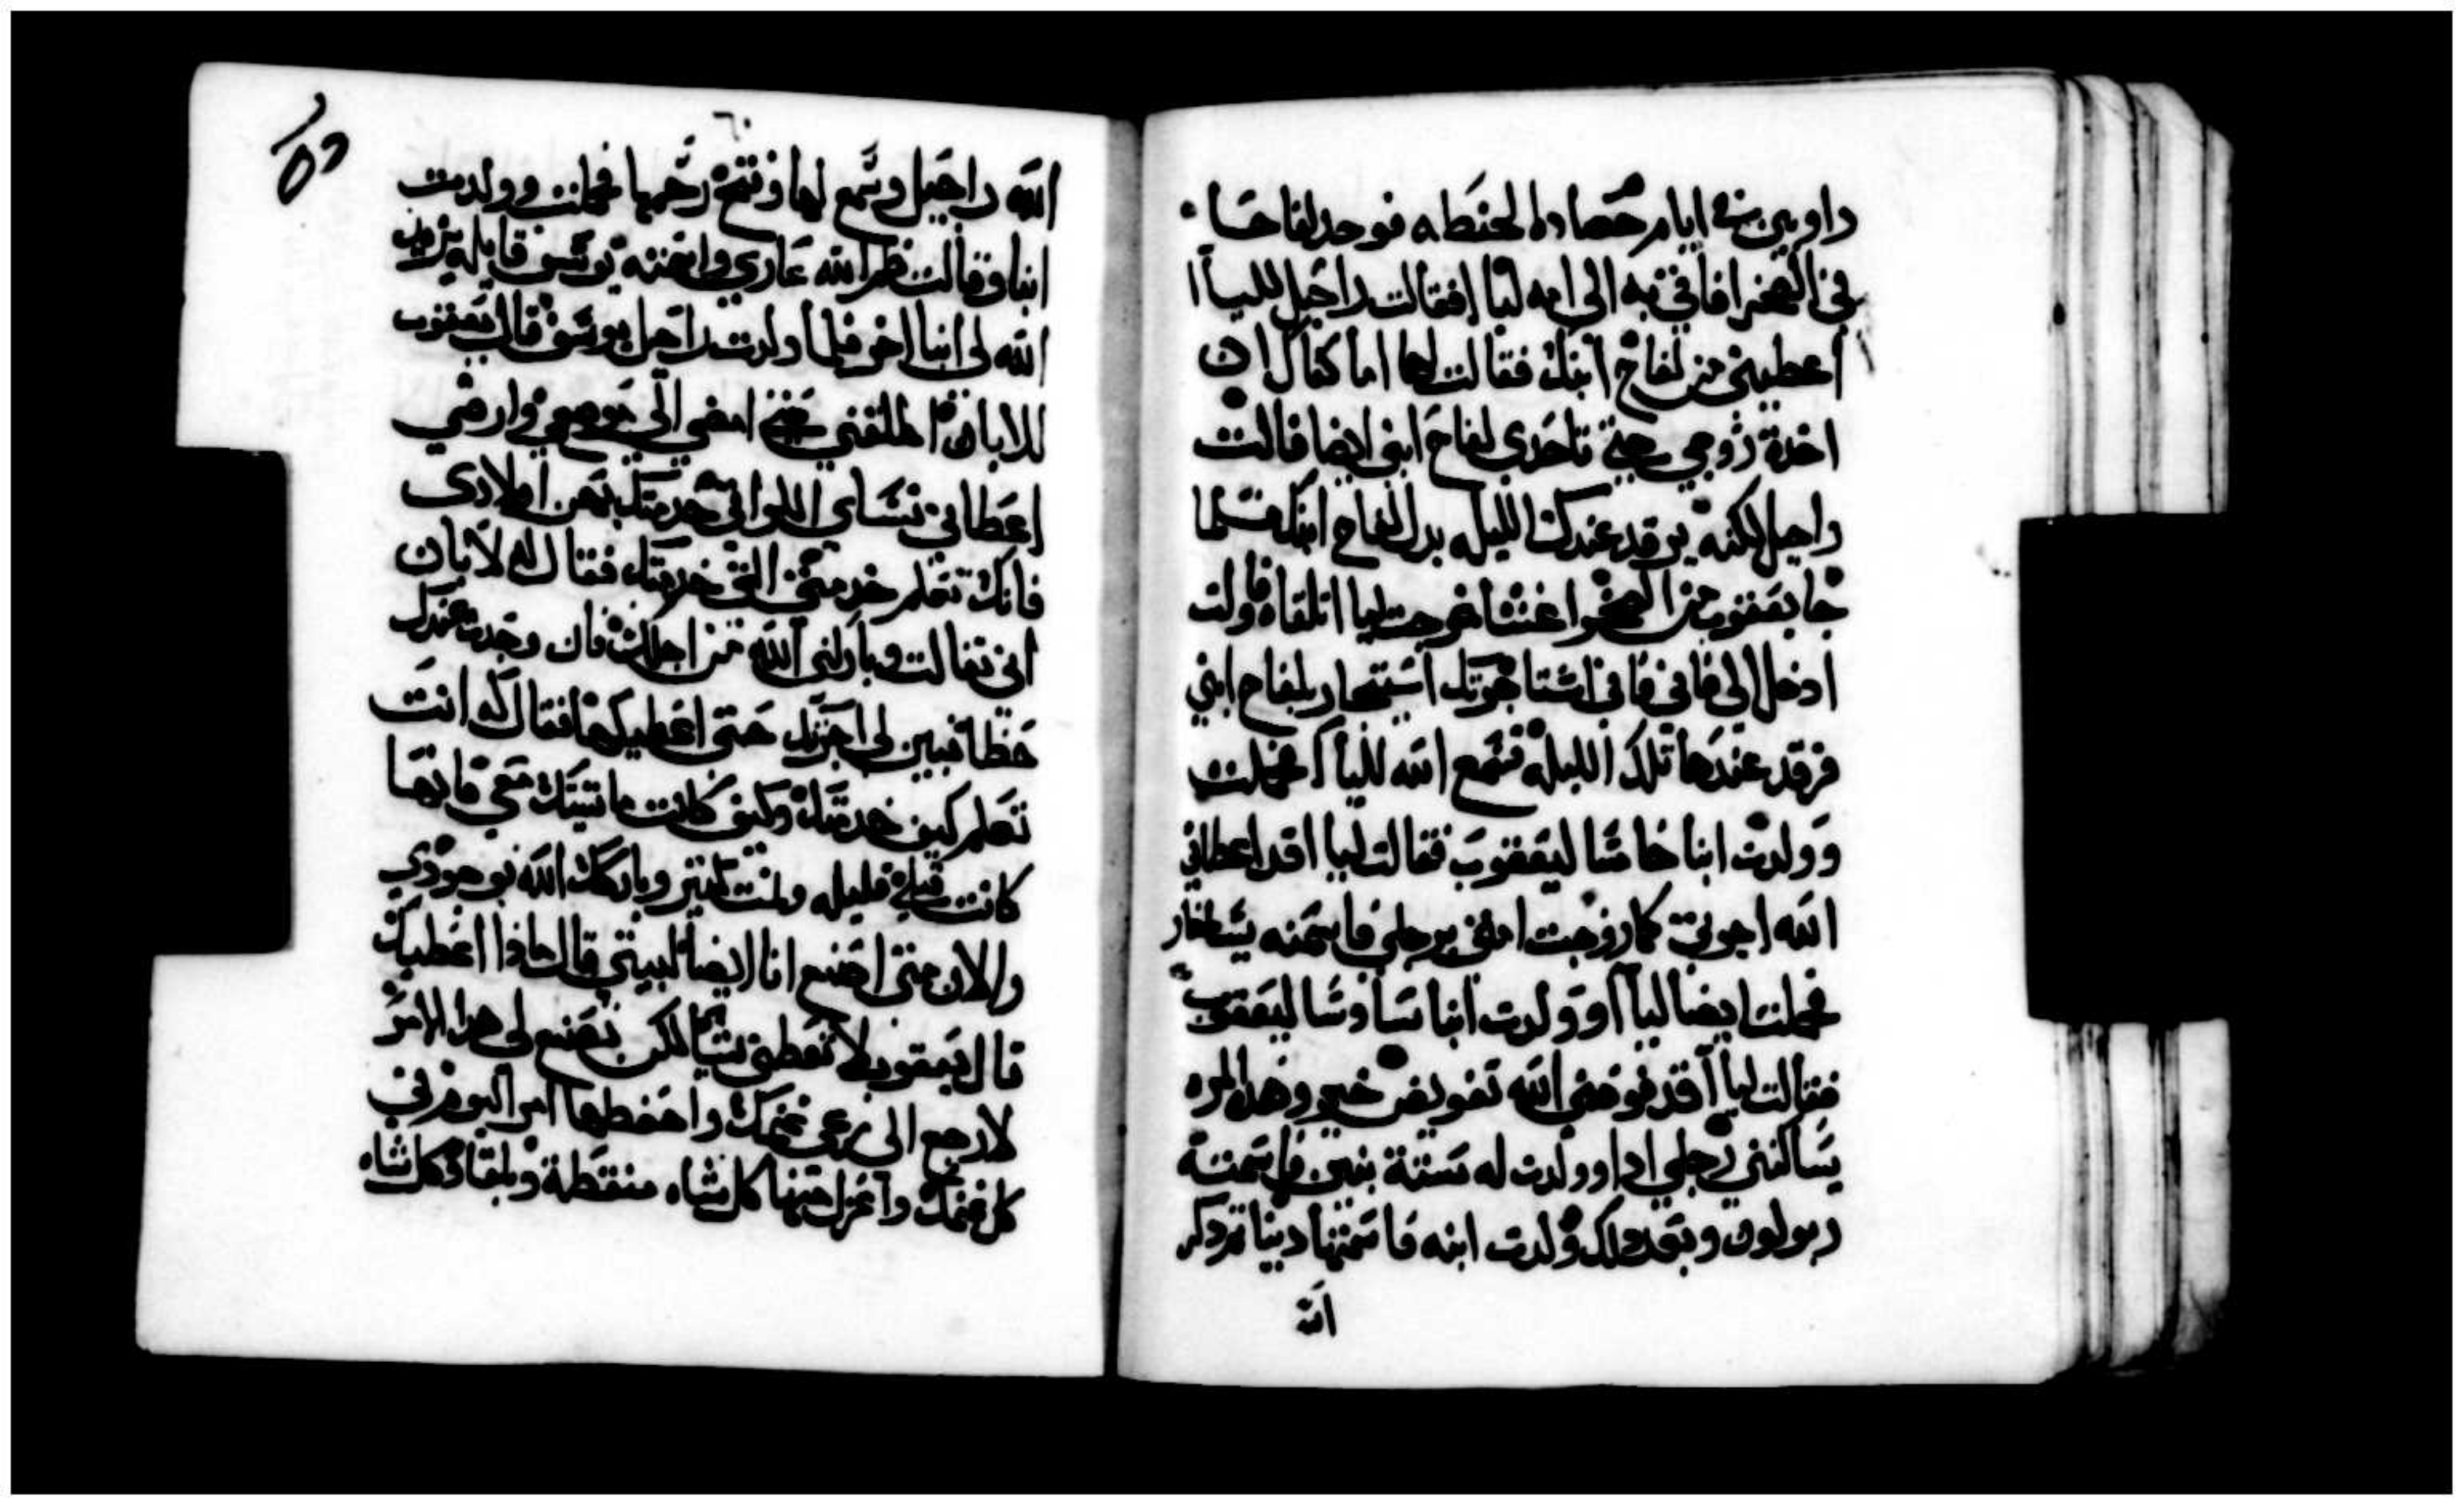 داوبين في ايام حصاد الحنطه فوجد لفاحا
في الصحرا فاتي به الى امه ليا افقالت راحيل لليا ا
اعطيني من لفاح ابنك فقالت لها اما كفاك ان
اخدة زوجي حتي تاخدي لفاح ابني ايضا قالت
راحيل لكنه يرقد عندك الليله بدل لفاح ابنك فلما
جا يعقوب من الصحرا عشا خرجت ليا ا تلقاه وقالت
ادخل الى فاني استاجرتك استيجار بلفاح ابني
فرقد عندها تلك الليله فسمع الله لليا ا فحملت
وولدت ابنا خامسا ليعقوب فقالت ليا ا قد اعطاني
الله اجرتي كما زوجت امتي برجلي فاسمته يساخار
فحملت ايضا ليا ا وولدت ابنا سادسا ليعقوب
فقالت ليا ا قد فوضني الله تفويض خير وهده المره
يساكنني رجلي ادا وولدت له ستة بنين فاسمته
ربولون وبعد دلك ولدت ابنه فاسمتها دينا تم دكر
الله
٦٠
الله راحيل وسمع لها وفتح رحمها فحملت وولدت
ابنا وقالت الله عاري واسمته يوسف قايله يزيد
الله لي ابنا اخر فلما ولدت راحيل يوسف قال يعقوب
للابان اطلقني حتي امضي الي موضعي وارضي
اعطاني نساي اللواتي خدمتك بهن اولادى
فانك تعلم خدمتي التي خدمتك فقال له لابان
اني تفالت وباركني الله من اجلك فان وجدت عندك
حظا فبين لي اجرتك حتى اعطيكها فقال له انت
تعلم كيف خدمتك وكيف كانت ماشيتك معي فانها
كانت قبلي قليله ونمت كثير وباركك الله بوجودي
والان متى اصنع انا ايضا لبيتي قال مادا اعطيك
قال يعقوب لا تعطني شيا لكن تصنع لى هدا الامر
لارجع الى رعى غنمك واحفظها امر اليوم في
كل غنمك واعزل منها كل شاه منقطة وبلقا وكل شاه